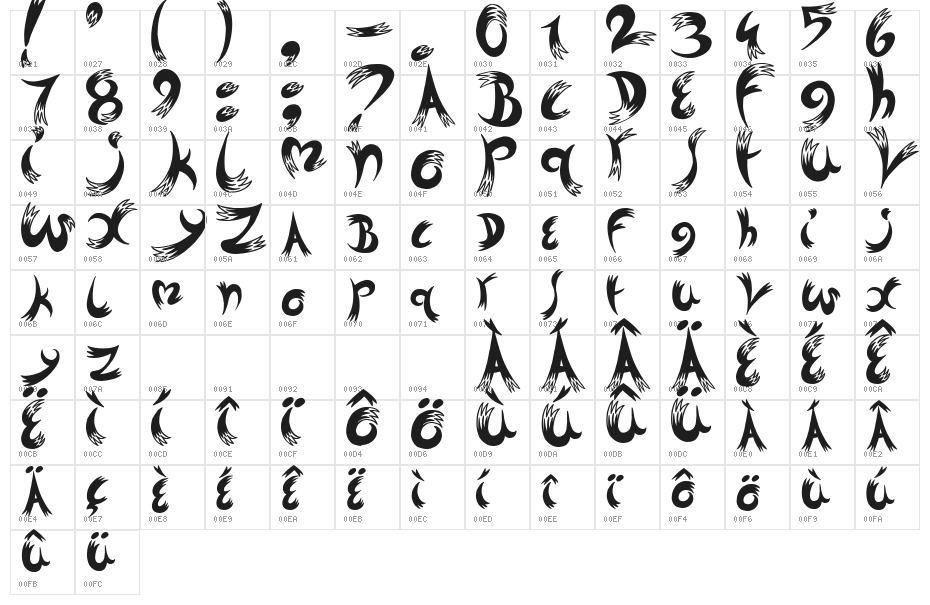 ! ' ( ) , - . 0 1 2 3 4 5 6
0021 0027 0028 0029 002C 002D 002E 0030 0031 0032 0033 0034 0035 0036
7 8 9 : ; ? A B C D E F g h
0037 0038 0039 003A 003B 003F 0041 0042 0043 0044 0045 0046 0047 0048
i j k L m n o p q r s t u v
0049 004A 004B 004C 004D 004E 004F 0050 0051 0052 0053 0054 0055 0056
w x y z A B C D E F g h i j
0057 0058 0059 005A 0061 0062 0063 0064 0065 0066 0067 0068 0069 006A
k L m n o p q r s t u v w x
006B 006C 006D 006E 006F 0070 0071 0072 0073 0074 0075 0076 0077 0078
y z À Á Â Ä È É Ê
0079 007A 0085 0091 0092 0093 0094 00C0 00C1 00C2 00C4 00C8 00C9 00CA
Ë ì í î ï ô ö ù ú û ü À Á Â
00CB 00CC 00CD 00CE 00CF 00D4 00D6 00D9 00DA 00DB 00DC 00E0 00E1 00E2
Ä ç È É Ê Ë ì í î ï ô ö ù ú
00E4 00E7 00E8 00E9 00EA 00EB 00EC 00ED 00EE 00EF 00F4 00F6 00F9 00FA
û ü
00FB 00FC